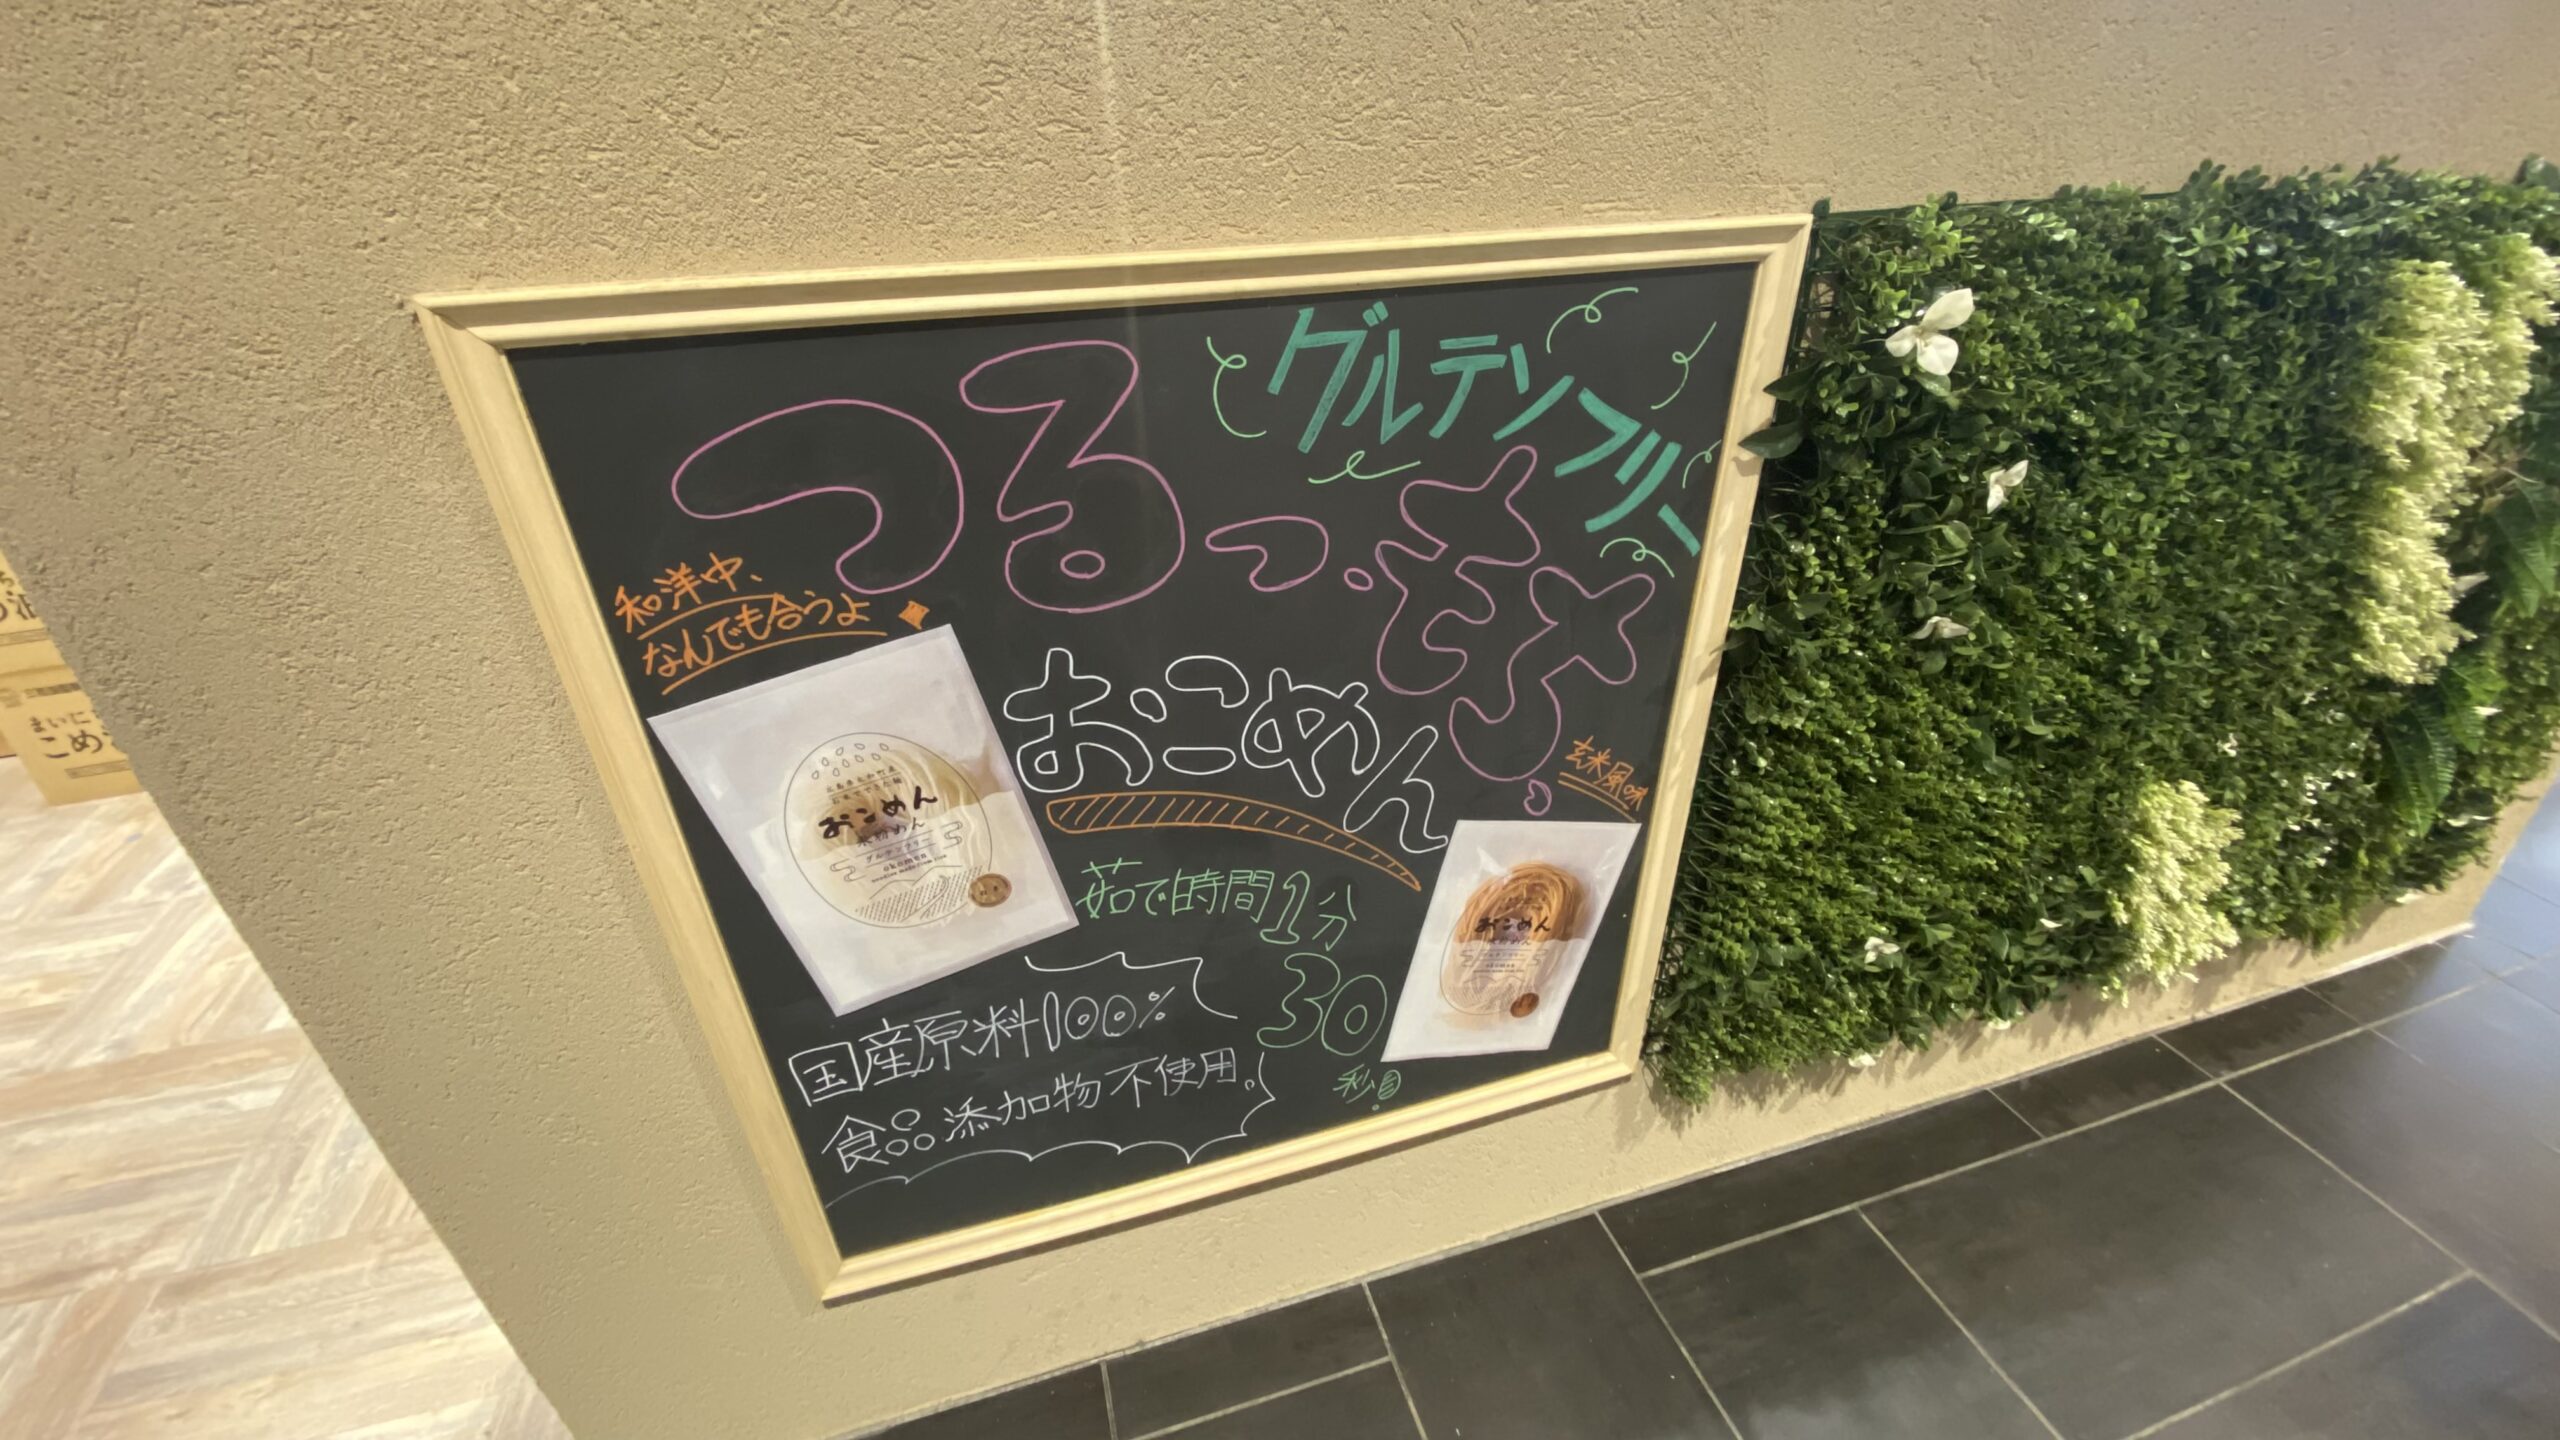 グルテンフリー
つるっ・もち。
和洋中、
なんでも合うよ
おこめん
玄米風味
おこめん
米粉めん
グルテンフリー
okomen
noodles made from rice
茹で時間1分
30
秒!
おこめん
米粉めん
グルテンフリー
okomen
国産原料100%
食品添加物不使用。
まいにち
こめ